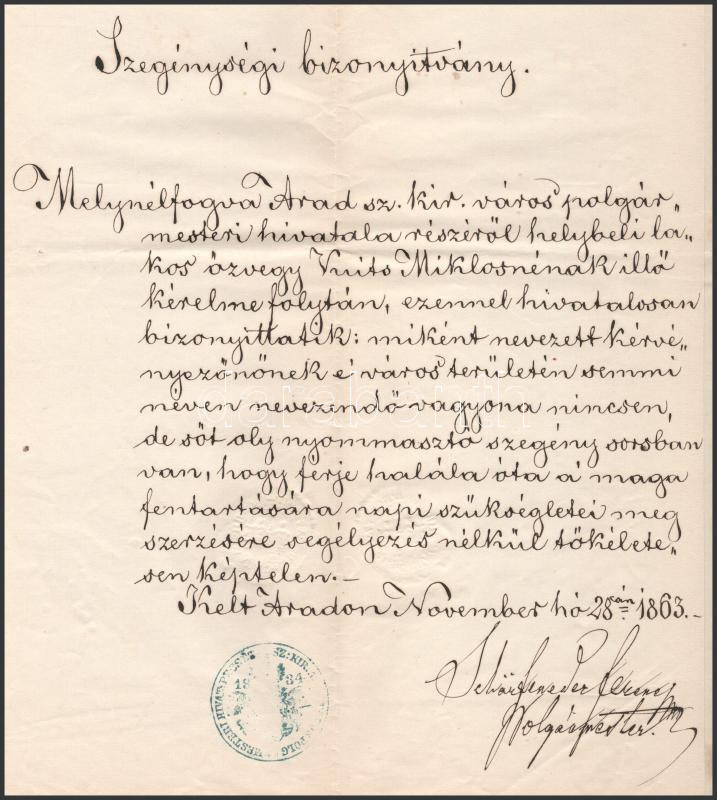 Szegénységi bizonyitvány.
Melynélfogva Arad sz. kir. város polgár„
mesteri hivatala részéről helybeli la„
kos özvegy Vuits Miklosnénak illő
kérelme folytán, ezennel hivatalosan
bizonyittatik: miként nevezett kérvé„
nyezőnőnek e' város területén semmi
néven nevezendő vagyona nincsen,
de sőt oly nyommasztó szegény sorsban
van, hogy férje halála óta a' maga
fentartására napi szükségletei meg
szerzésére segélyezés nélkül tökélete„
sen képtelen.—
Kelt Aradon November hó 28án 1863.—
Ferencz
Polgármester
darabanth
SZ: KIR.
POLG
MESTERI HIVATAL
18 34